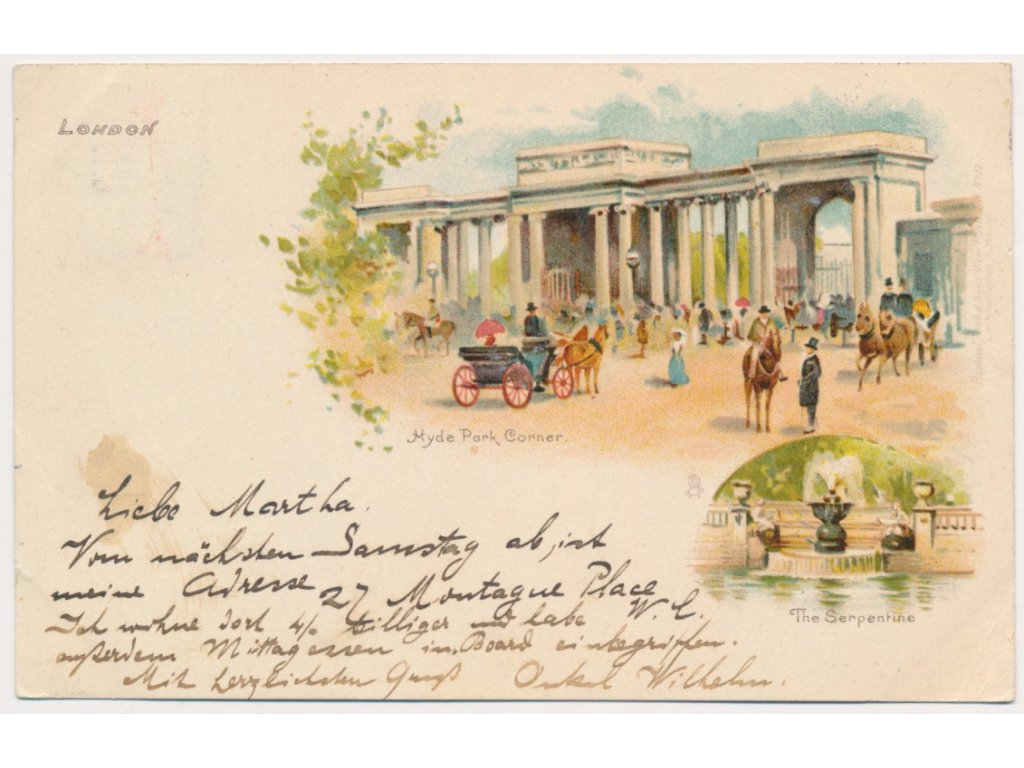 LONDON
Hyde Park Corner.
The Serpentine
Liebe Martha.
Vom nächsten Samstag ab, ist
meine Adresse 27 Montague Place
W. C.
Ich wohne dort 4/- billiger und habe
außerdem Mittagessen im Board einbegriffen.
Mit herzlichsten Gruß Onkel Wilhelm.